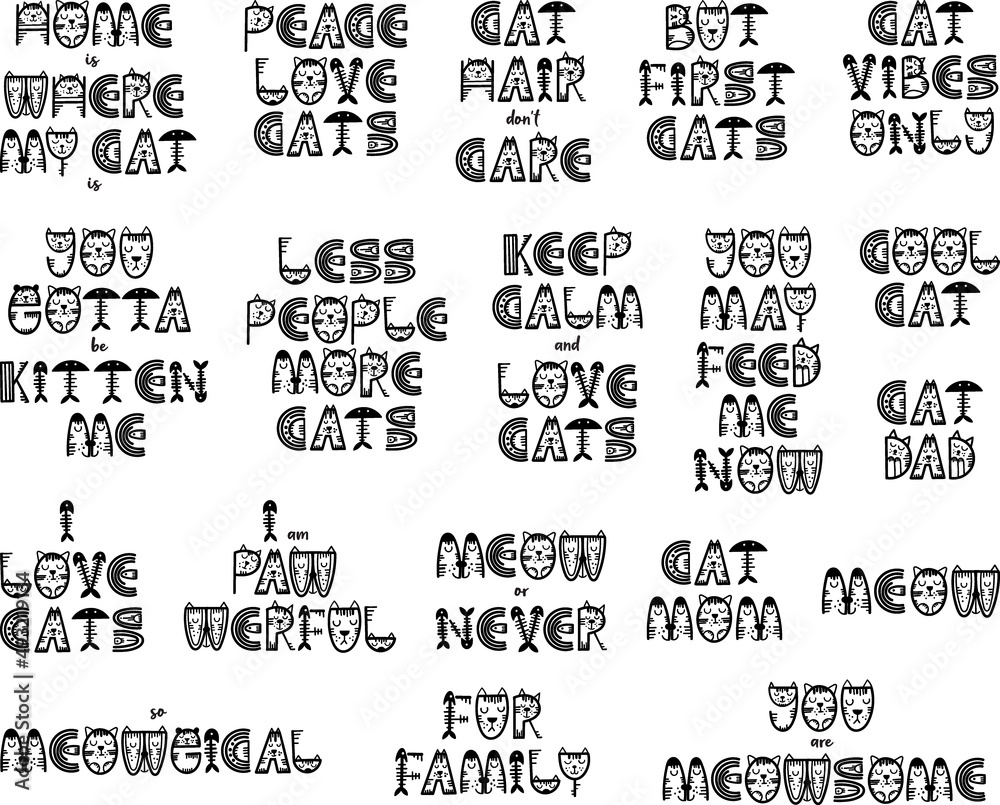 HOME
is
WHERE
MY CAT
is
PEACE
LOVE
CATS
CAT
HAIR
don't
CARE
BUT
FIRST
CATS
CAT
VIBES
ONLY
YOU
GOTTA
be
KITTEN
ME
LESS
PEOPLE
MORE
CATS
KEEP
CALM
and
LOVE
CATS
YOU
MAY
FEED
ME
NOW
COOL
CAT
CAT
DAD
I
LOVE
CATS
I am
PAW
WERFUL
MEOW
or
NEVER
CAT
MOM
MEOW
so
MEOWGICAL
FUR
FAMILY
YOU
are
MEOWSOME
Adobe Stock